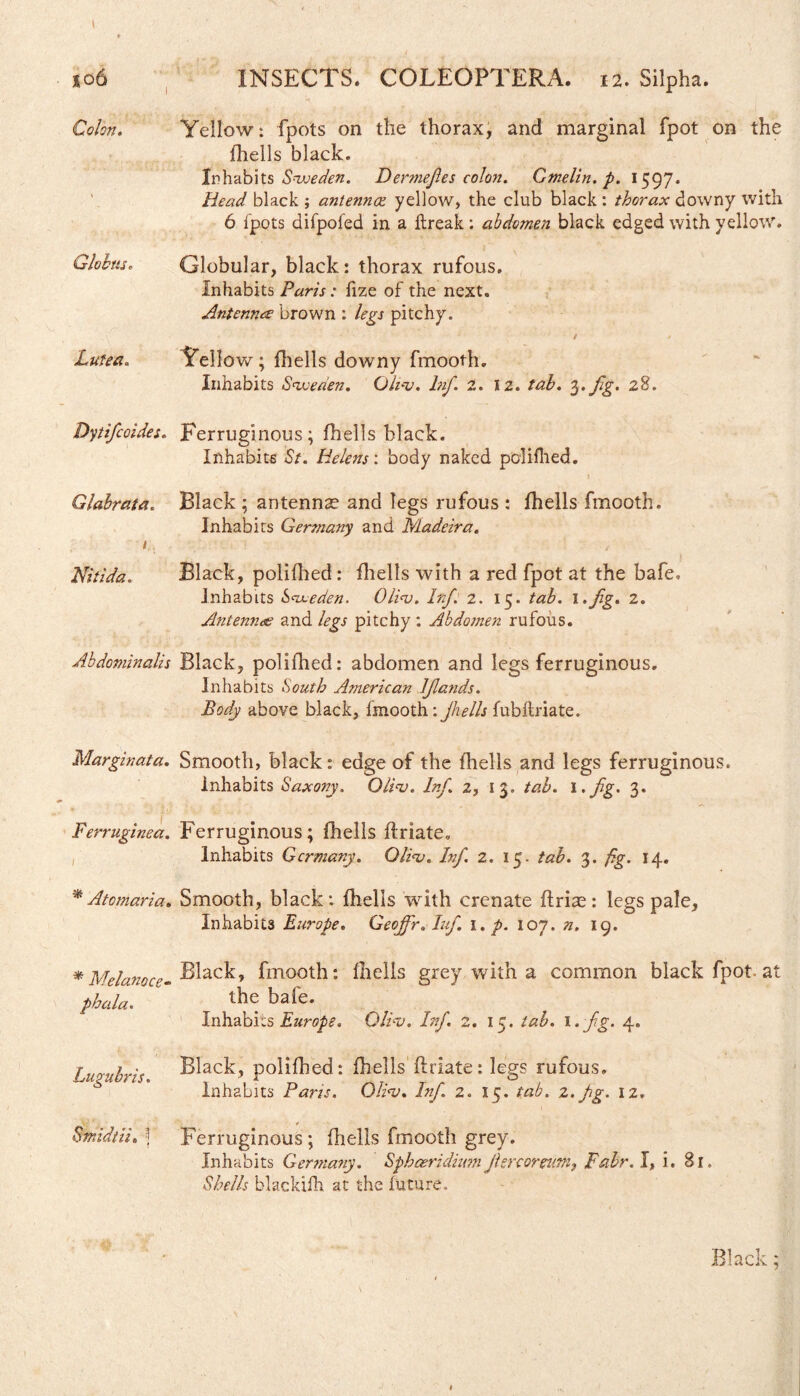 106 INSECTS. COLEOPTERA. 12. Silpha.
Colon. Yellow: ſpots on the thorax, and marginal ſpot on the
ſhells black.
Inhabits Sweden. Dermeſtes colon. Gmelin. p. 1597.
Head black; antennæ yellow, the club black: thorax downy with
6 ſpots diſpoſed in a ſtreak: abdomen black edged with yellow.
Globus. Globular, black: thorax rufous.
Inhabits Paris: ſize of the next.
Antennæ brown: legs pitchy.
Lutea. Yellow; ſhells downy ſmooth.
Inhabits Sweden. Oliv. Inſ. 2. 12. tab. 3. fig. 28.
Dytiſcoides. Ferruginous; ſhells black.
Inhabits St. Helens: body naked poliſhed.
Glabrata. Black; antennæ and legs rufous: ſhells ſmooth.
Inhabits Germany and Madeira.
Nitida. Black, poliſhed: ſhells with a red ſpot at the baſe.
Inhabits Sweden. Oliv. Inſ. 2. 15. tab. 1. fig. 2.
Antennæ and legs pitchy: Abdomen rufous.
Abdominalis Black, poliſhed: abdomen and legs ferruginous.
Inhabits South American Iſlands.
Body above black, ſmooth: ſhells ſubſtriate.
Marginata. Smooth, black: edge of the ſhells and legs ferruginous.
Inhabits Saxony. Oliv. Inſ. 2, 13. tab. 1. fig. 3.
Ferruginea. Ferruginous; ſhells ſtriate.
Inhabits Germany. Oliv. Inſ. 2. 15. tab. 3. fig. 14.
* Atomaria. Smooth, black: ſhells with crenate ſtriæ: legs pale,
Inhabits Europe. Geoffr. Inſ. 1. p. 107. n. 19.
* Melanoce- Black, ſmooth: ſhells grey with a common black ſpot at
phala. the baſe.
Inhabits Europe. Oliv. Inſ. 2. 15. tab. 1. fig. 4.
Lugubris. Black, poliſhed: ſhells ſtriate: legs rufous.
Inhabits Paris. Oliv. Inſ. 2. 15. tab. 2. fig. 12.
Smidtii. Ferruginous; ſhells ſmooth grey.
Inhabits Germany. Sphæridium ſtercoreum, Fabr. I, i. 81.
Shells blackiſh at the future.
Black;